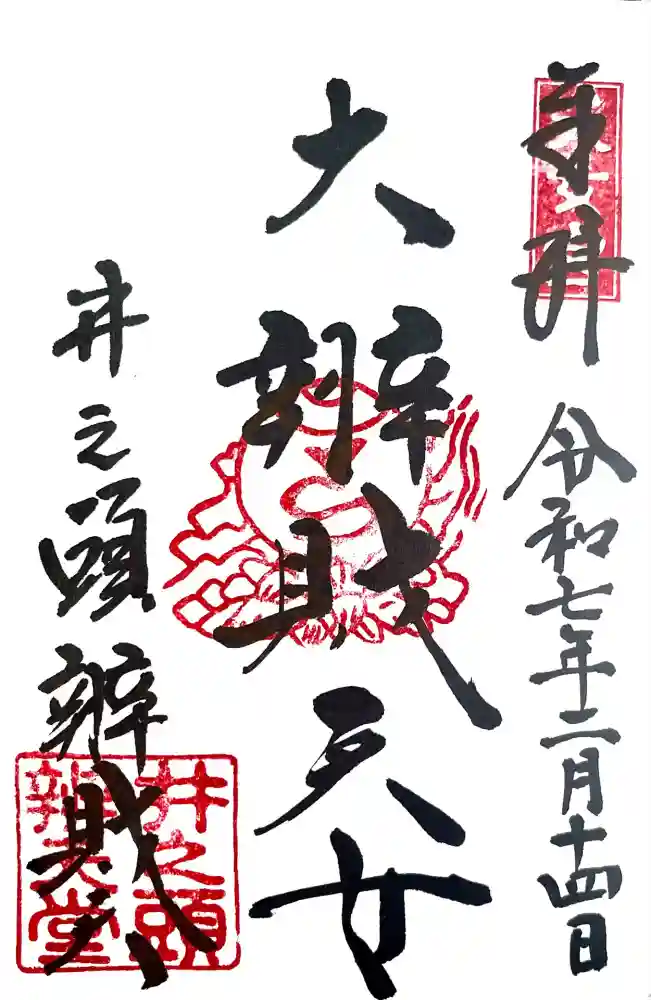 奉拝
令和七年二月十四日
大辨財天女
井之頭辨財天
井之頭
辨天堂